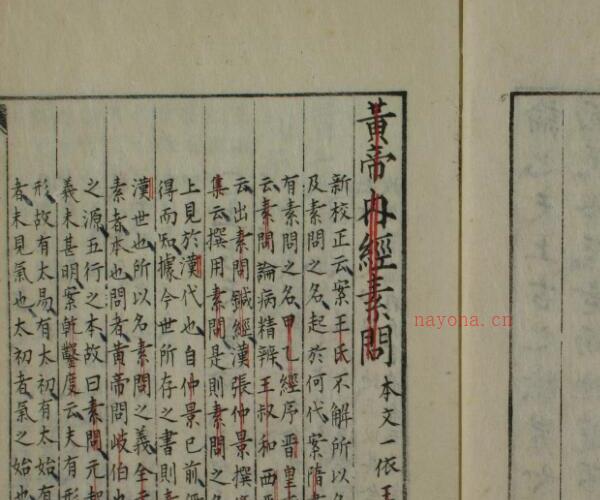 黃帝內經素問 本文一依王
新校正云案王氏不解所以名
及素問之名起於何代案隋書
有素問之名甲乙經序晉皇甫
云素問論病精辨王叔和西晉
云出素問鍼經漢張仲景撰
集云撰用素問是則素問之名
上見於漢代也自仲景已前
得而知據今世所存之書則素
漢世也所以名素問之義全元
素者本也問者黃帝問歧伯也
之源五行之本故曰素問元起
義未甚明案乾鑿度云夫有形
形故有太易有太初有太始有
者未見氣也太初者氣之始也
nayona.cn